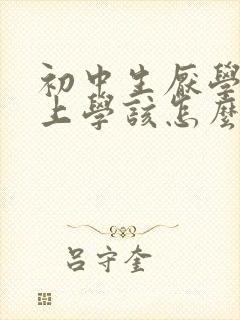 初中生厭學
上學該怎麼
吕守奎